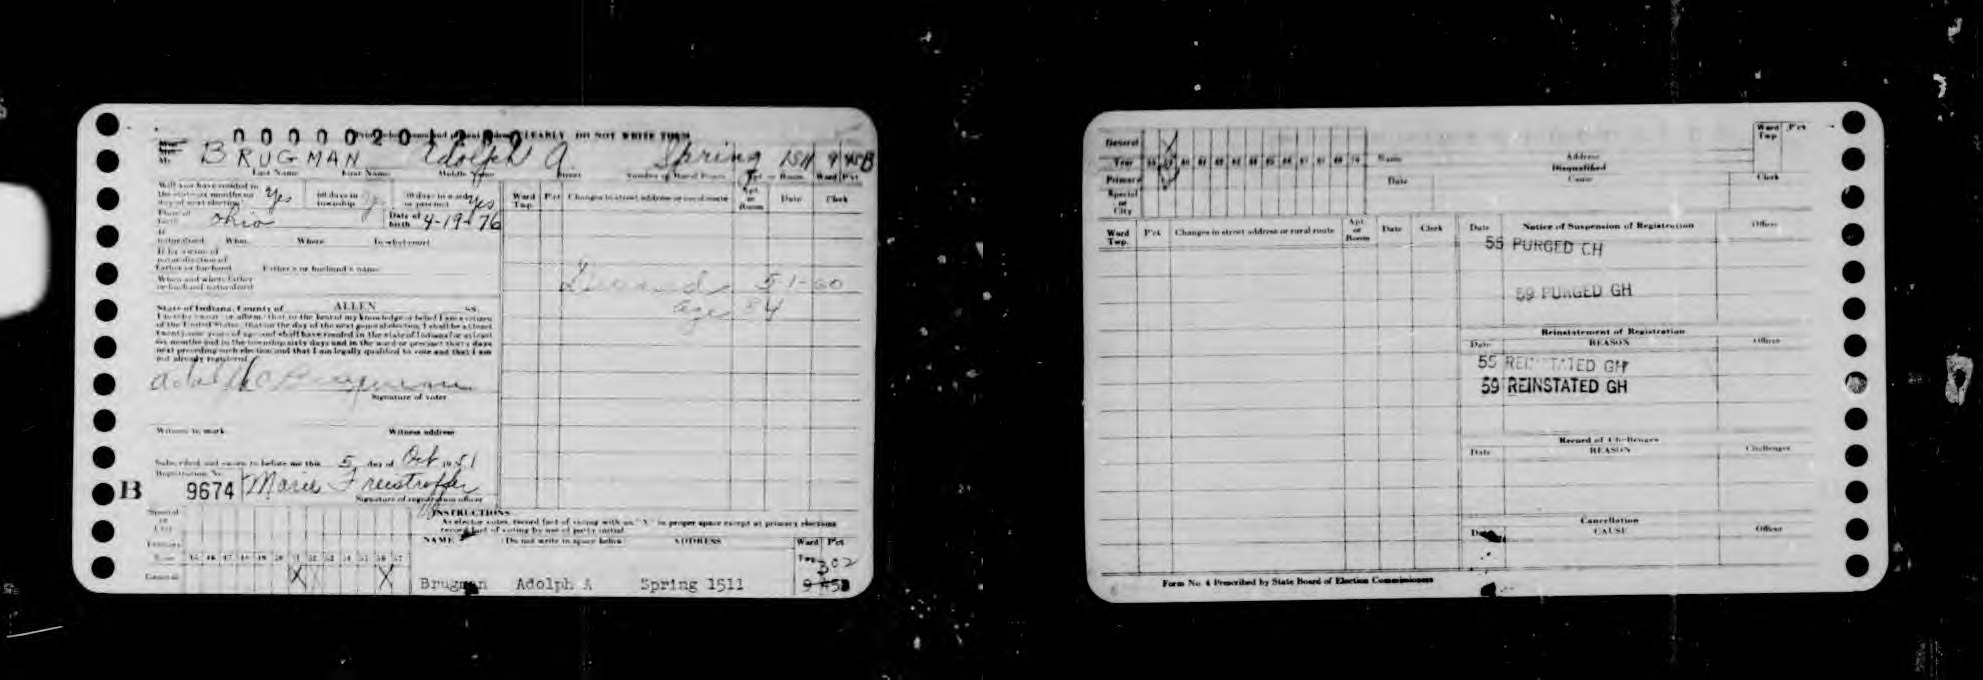 0000020
CLEARLY DO NOT WRITE THEM
BRUGMAN Adolph A. Spring 1511 9 45B
Last Name First Name Middle Name Street Number or Rural Route Apt. or Room Ward Pct
Will you have resided in the state six months on day of next election? Yes 60 days in township Yes 30 days in ward or precinct Yes
Place of birth Ohio Date of birth 4-19-76
If naturalized When Where In what court
Father's or husband's name
When and where father or husband naturalized
Ward Twp. Pct Changes in street address or rural route Apt. or Room Date Clerk
Deceased 5-1-60
age 84
State of Indiana, County of ALLEN SS.
I hereby swear or affirm, that to the best of my knowledge or belief I am a citizen
of the United States, that on the day of the next general election, I shall be at least
twenty-one years of age and shall have resided in the state of Indiana for at least
six months and in the township sixty days and in the ward or precinct thirty days
next preceding such election and that I am legally qualified to vote and that I am
not already registered.
Adolph A Brugman
Signature of voter
Witness to mark Witness address
Subscribed and sworn to before me this 5 day of Oct 1951
Registration No.
B 9674 Marie Freistroffer
Signature of registration officer
INSTRUCTIONS
As elector votes, record fact of voting with an "X" in proper space except at primary elections
record fact of voting by use of party initial.
NAME (Do not write in space below) ADDRESS Ward Pct
Special or City
Primary
Year 45 46 47 48 49 50 51 52 53 54 55 56 57
General X X
Twp. 302
Brugman Adolph A Spring 1511 9 45B
General
Year 60 61 62 63 64 65 66 67 68 69 70
Primary
Special or City
Name Address Ward Twp. Pct
Disqualified
Date Cause Clerk
Ward Twp. Pct Changes in street address or rural route Apt. or Room Date Clerk
Date Notice of Suspension of Registration Officer
55 PURGED GH
59 PURGED GH
Reinstatement of Registration
Date REASON Officer
55 REINSTATED GH
59 REINSTATED GH
Record of Challenges
Date REASON Challenger
Cancellation
Date CAUSE Officer
Form No. 4 Prescribed by State Board of Election Commissioners